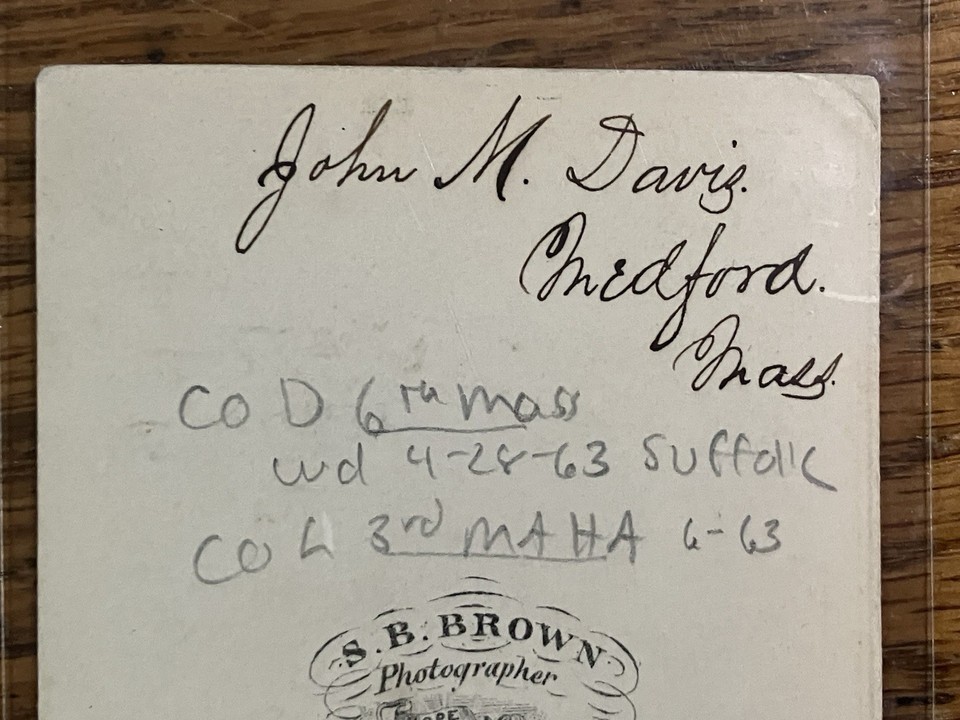 John M. Davis.
Medford.
Mass.
CO D 6th Mass
wd 4-28-63 Suffolk
CO L 3rd MAHA 6-63
S. B. BROWN
Photographer